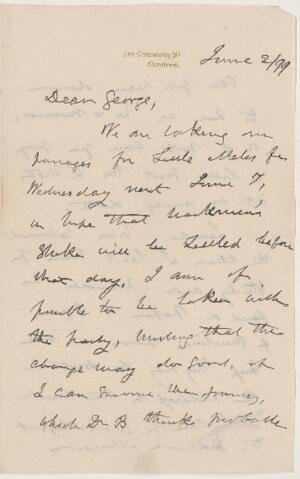 293 University St
Montreal
June 2/99
Dear George,
We are taking our
passages for Little Metis for
Wednesday next June 7,
in hope that trackmen's
Strike will be settled before
that day. I am if
possible to be taken with
the party, trusting that the
change may do good, if
I can survive the journey,
which Dr B thinks probable